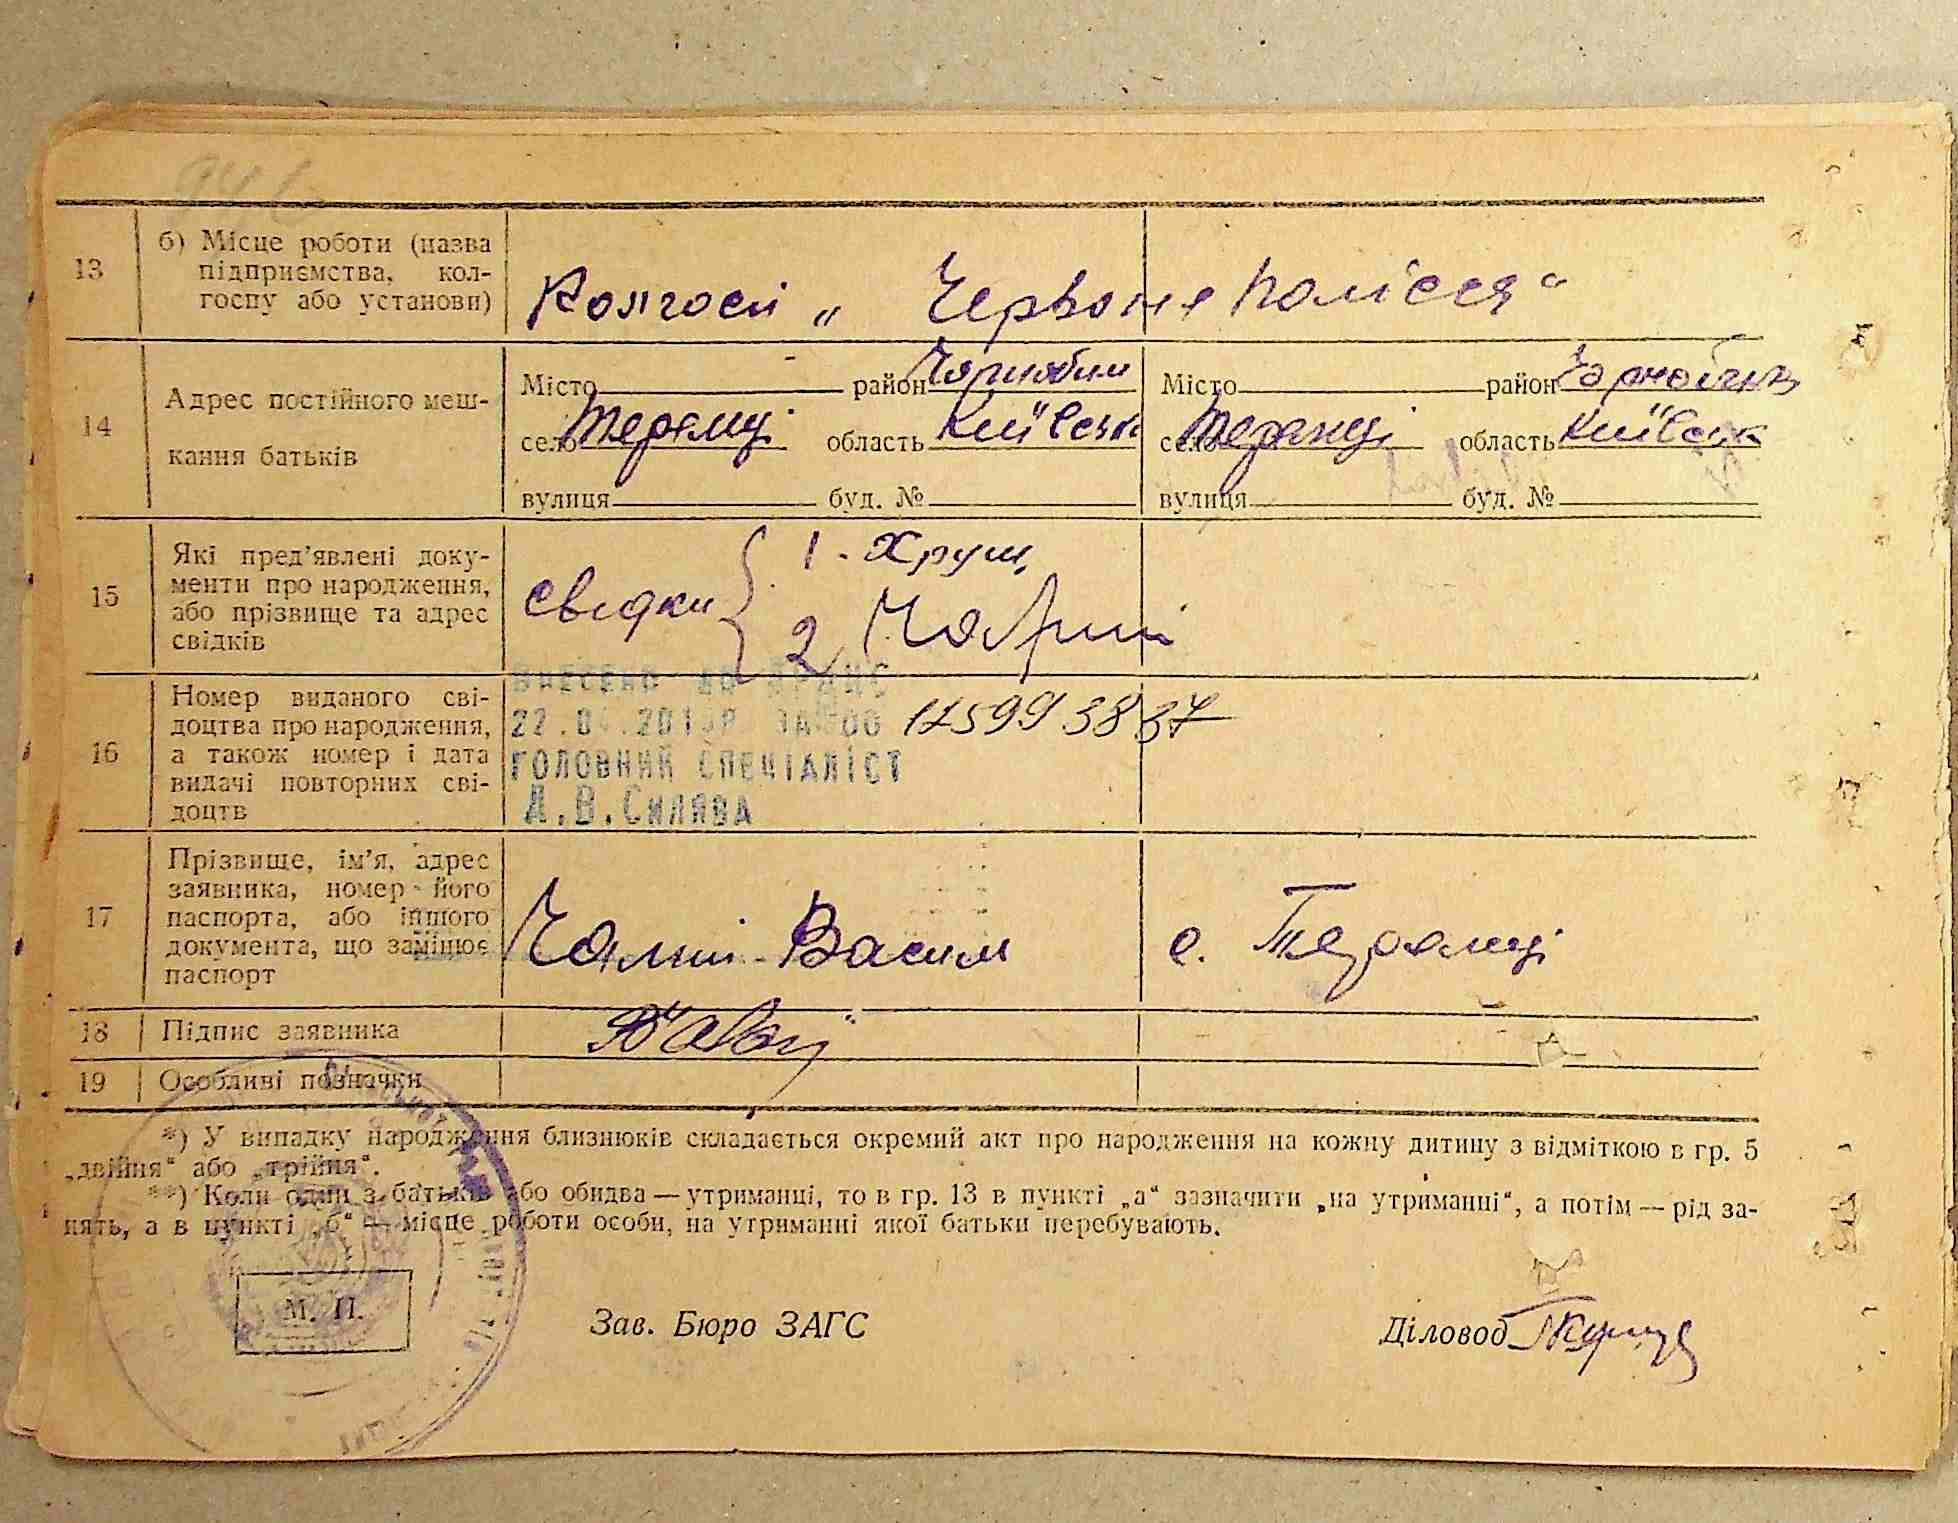 13
б) Місце роботи (назва
підприємства, кол-
госпу або установи)
Колгосп „Червоне Полісся“
14
Адрес постійного меш-
кання батьків
Місто район Чорнобил Місто район
село Теремці область Київськ село Теремці область Київськ
вулиця буд. № вулиця буд. №
15
Які пред’явлені доку-
менти про народження,
або прізвище та адрес
свідків
Свідки { 1. Хрущ
2
16
Номер виданого сві-
доцтва про народження,
а також номер і дата
видачі повторних сві-
доцтв
ВНЕСЕНО ДО ДРАЦС
125993837
ГОЛОВНИЙ СПЕЦІАЛІСТ
А.В.Силява
17
Прізвище, ім’я, адрес
заявника, номер його
паспорта, або іншого
документа, що замінює
паспорт
Чалий Васил с. Теремці
18
Підпис заявника
19
Особливі позначки
*) У випадку народження близнюків складається окремий акт про народження на кожну дитину з відміткою в гр. 5
„двійня“ або „трійня“.
**) Коли один з батьків або обидва — утриманці, то в гр. 13 в пункті „а“ зазначити „на утриманні“, а потім — рід за-
нять, а в пункті „б“ — місце роботи особи, на утриманні якої батьки перебувають.
М. П.
Зав. Бюро ЗАГС
Діловод